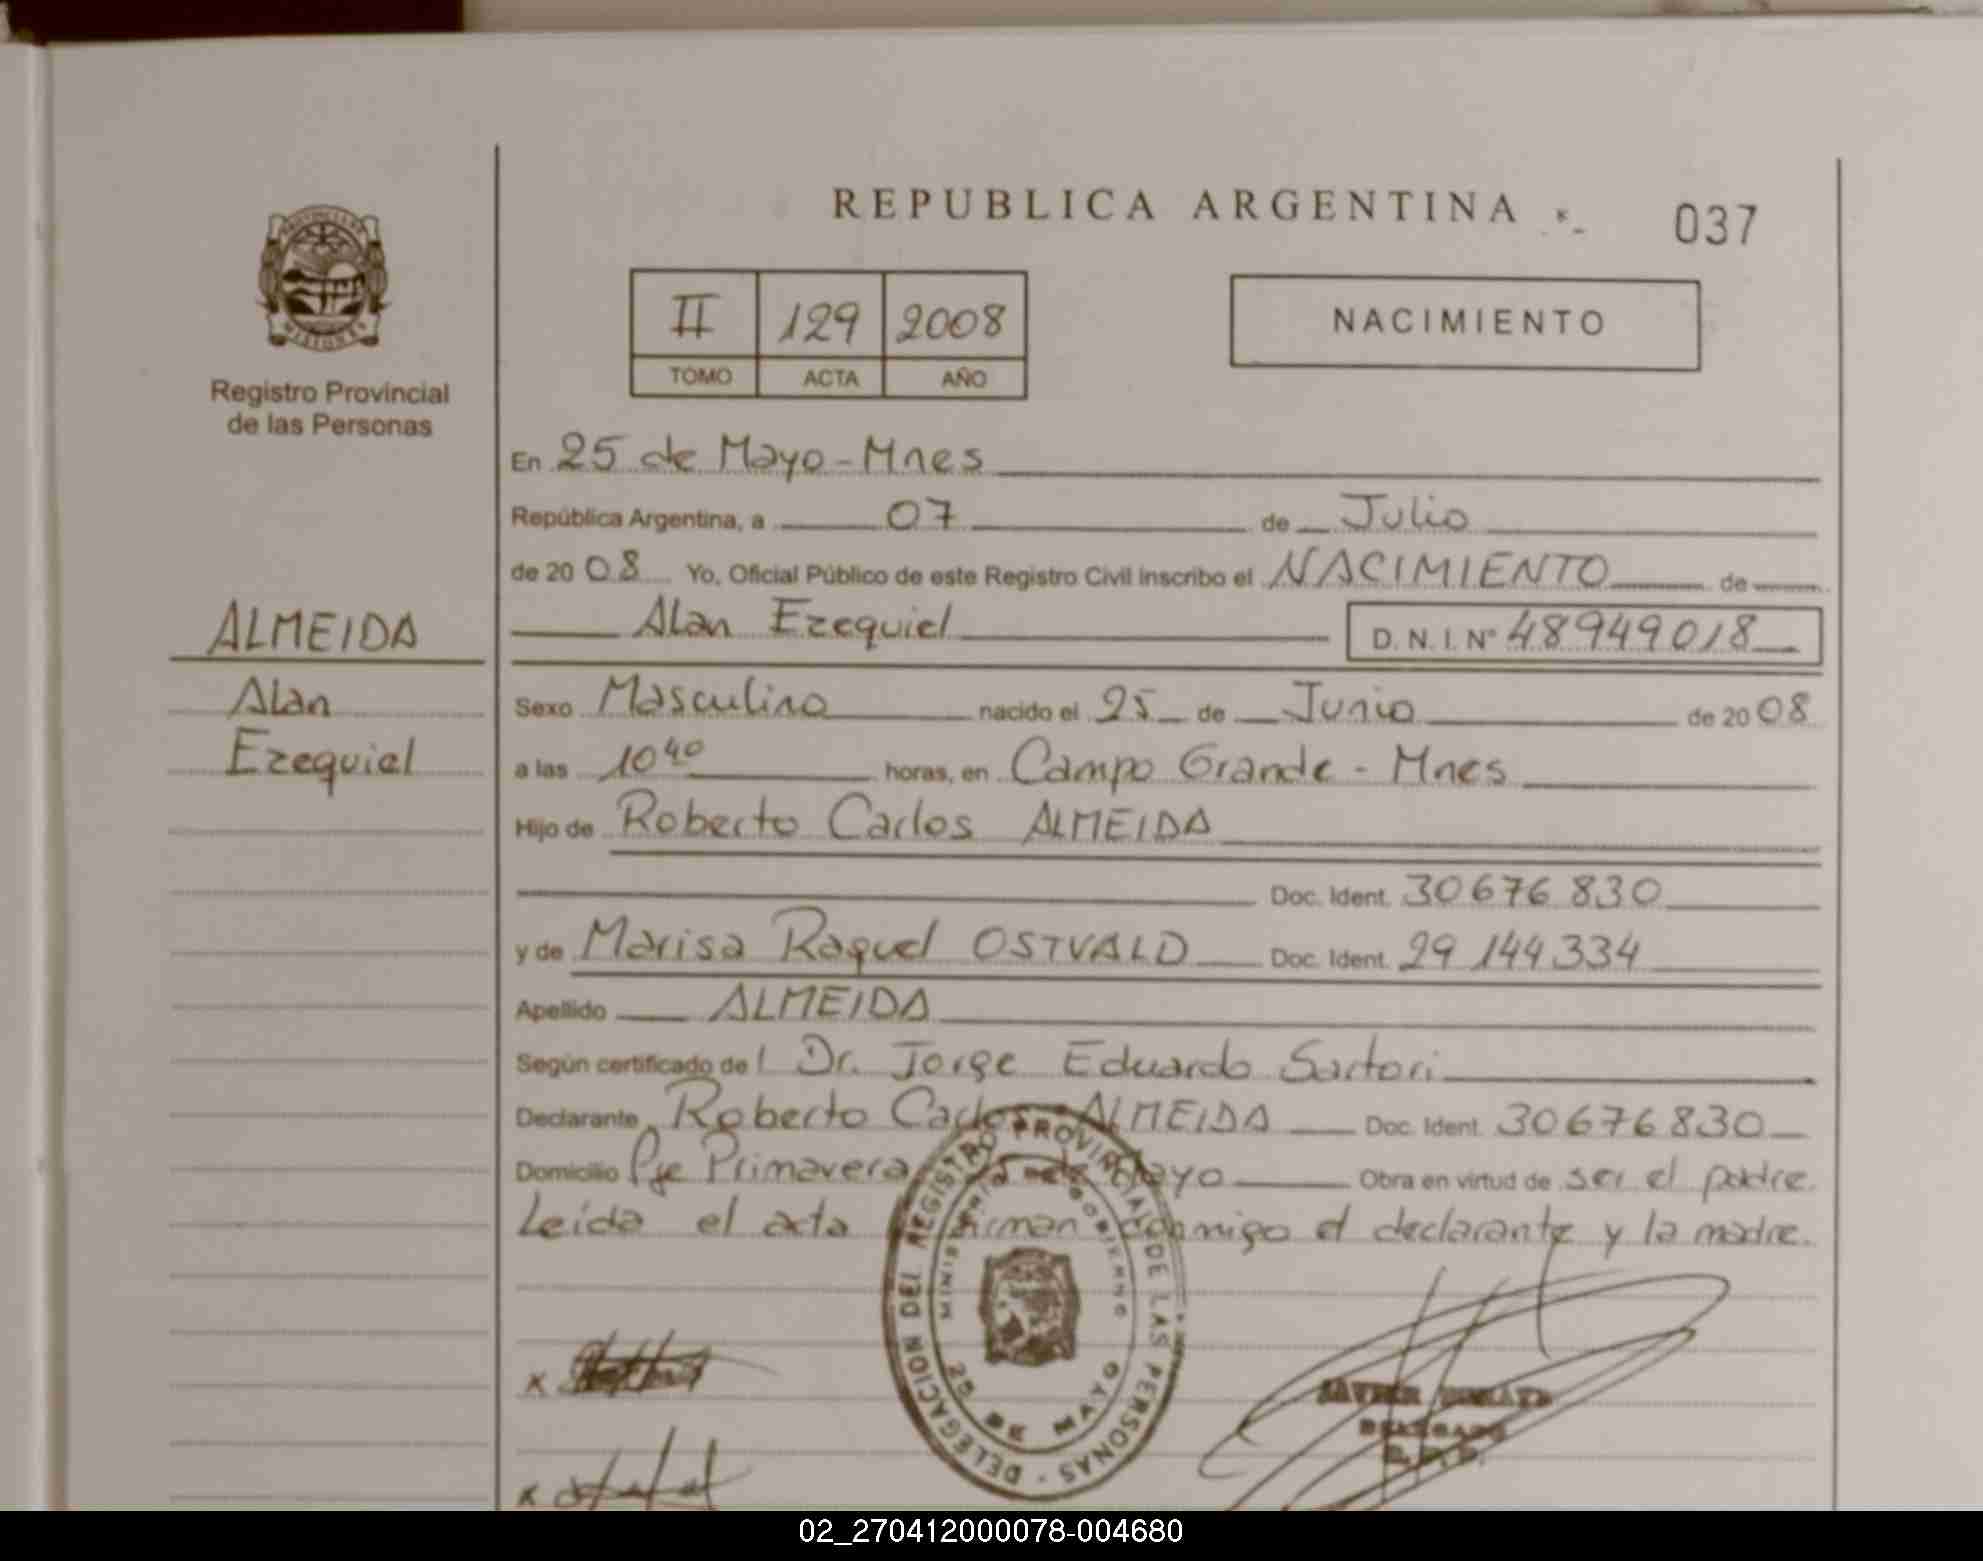 REPUBLICA ARGENTINA
037
II 129 2008
TOMO ACTA AÑO
NACIMIENTO
MISIONES
Registro Provincial
de las Personas
En 25 de Mayo - Mnes
República Argentina, a 07 de Julio
de 2008 Yo, Oficial Público de este Registro Civil inscribo el NACIMIENTO de
Alan Ezequiel D.N.I. Nº 48949018
ALMEIDA
Alan
Ezequiel
Sexo Masculino nacido el 25 de Junio de 2008
a las 10 40 horas, en Campo Grande - Mnes
Hijo de Roberto Carlos ALMEIDA
Doc. Ident. 30676830
y de Marisa Raquel OSTVALD Doc. Ident. 29144334
Apellido ALMEIDA
Según certificado del Dr. Jorge Eduardo Sartori
Declarante Roberto Carlos ALMEIDA Doc. Ident. 30676830
Domicilio Pje Primavera Mayo Obra en virtud de ser el padre.
Leída el acta firman conmigo el declarante y la madre.
DELEGACION DEL REGISTRO PROVINCIAL DE LAS PERSONAS
MINISTERIO DE GOBIERNO
25 DE MAYO
x
x
JAVIER
DELEGADO
02_270412000078-004680